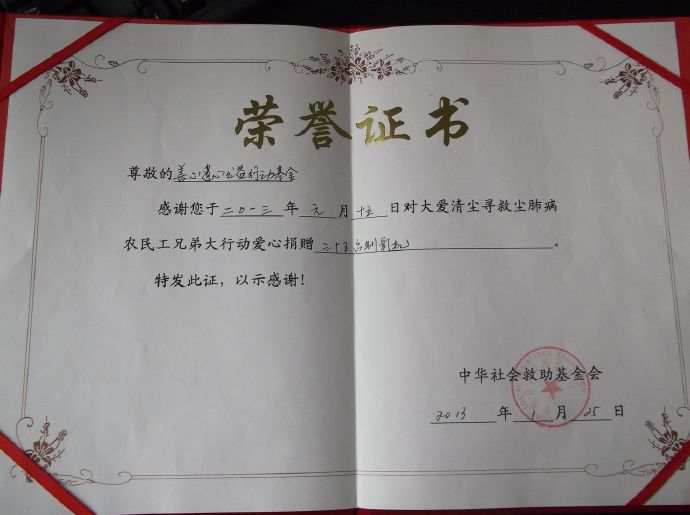 荣誉证书
尊敬的姜心遗心公益行动基金
感谢您于二〇一三年元月十五日对大爱清尘寻救尘肺病
农民工兄弟大行动爱心捐赠二十五台制氧机。
特发此证，以示感谢！
中华社会救助基金会
2013年1月25日